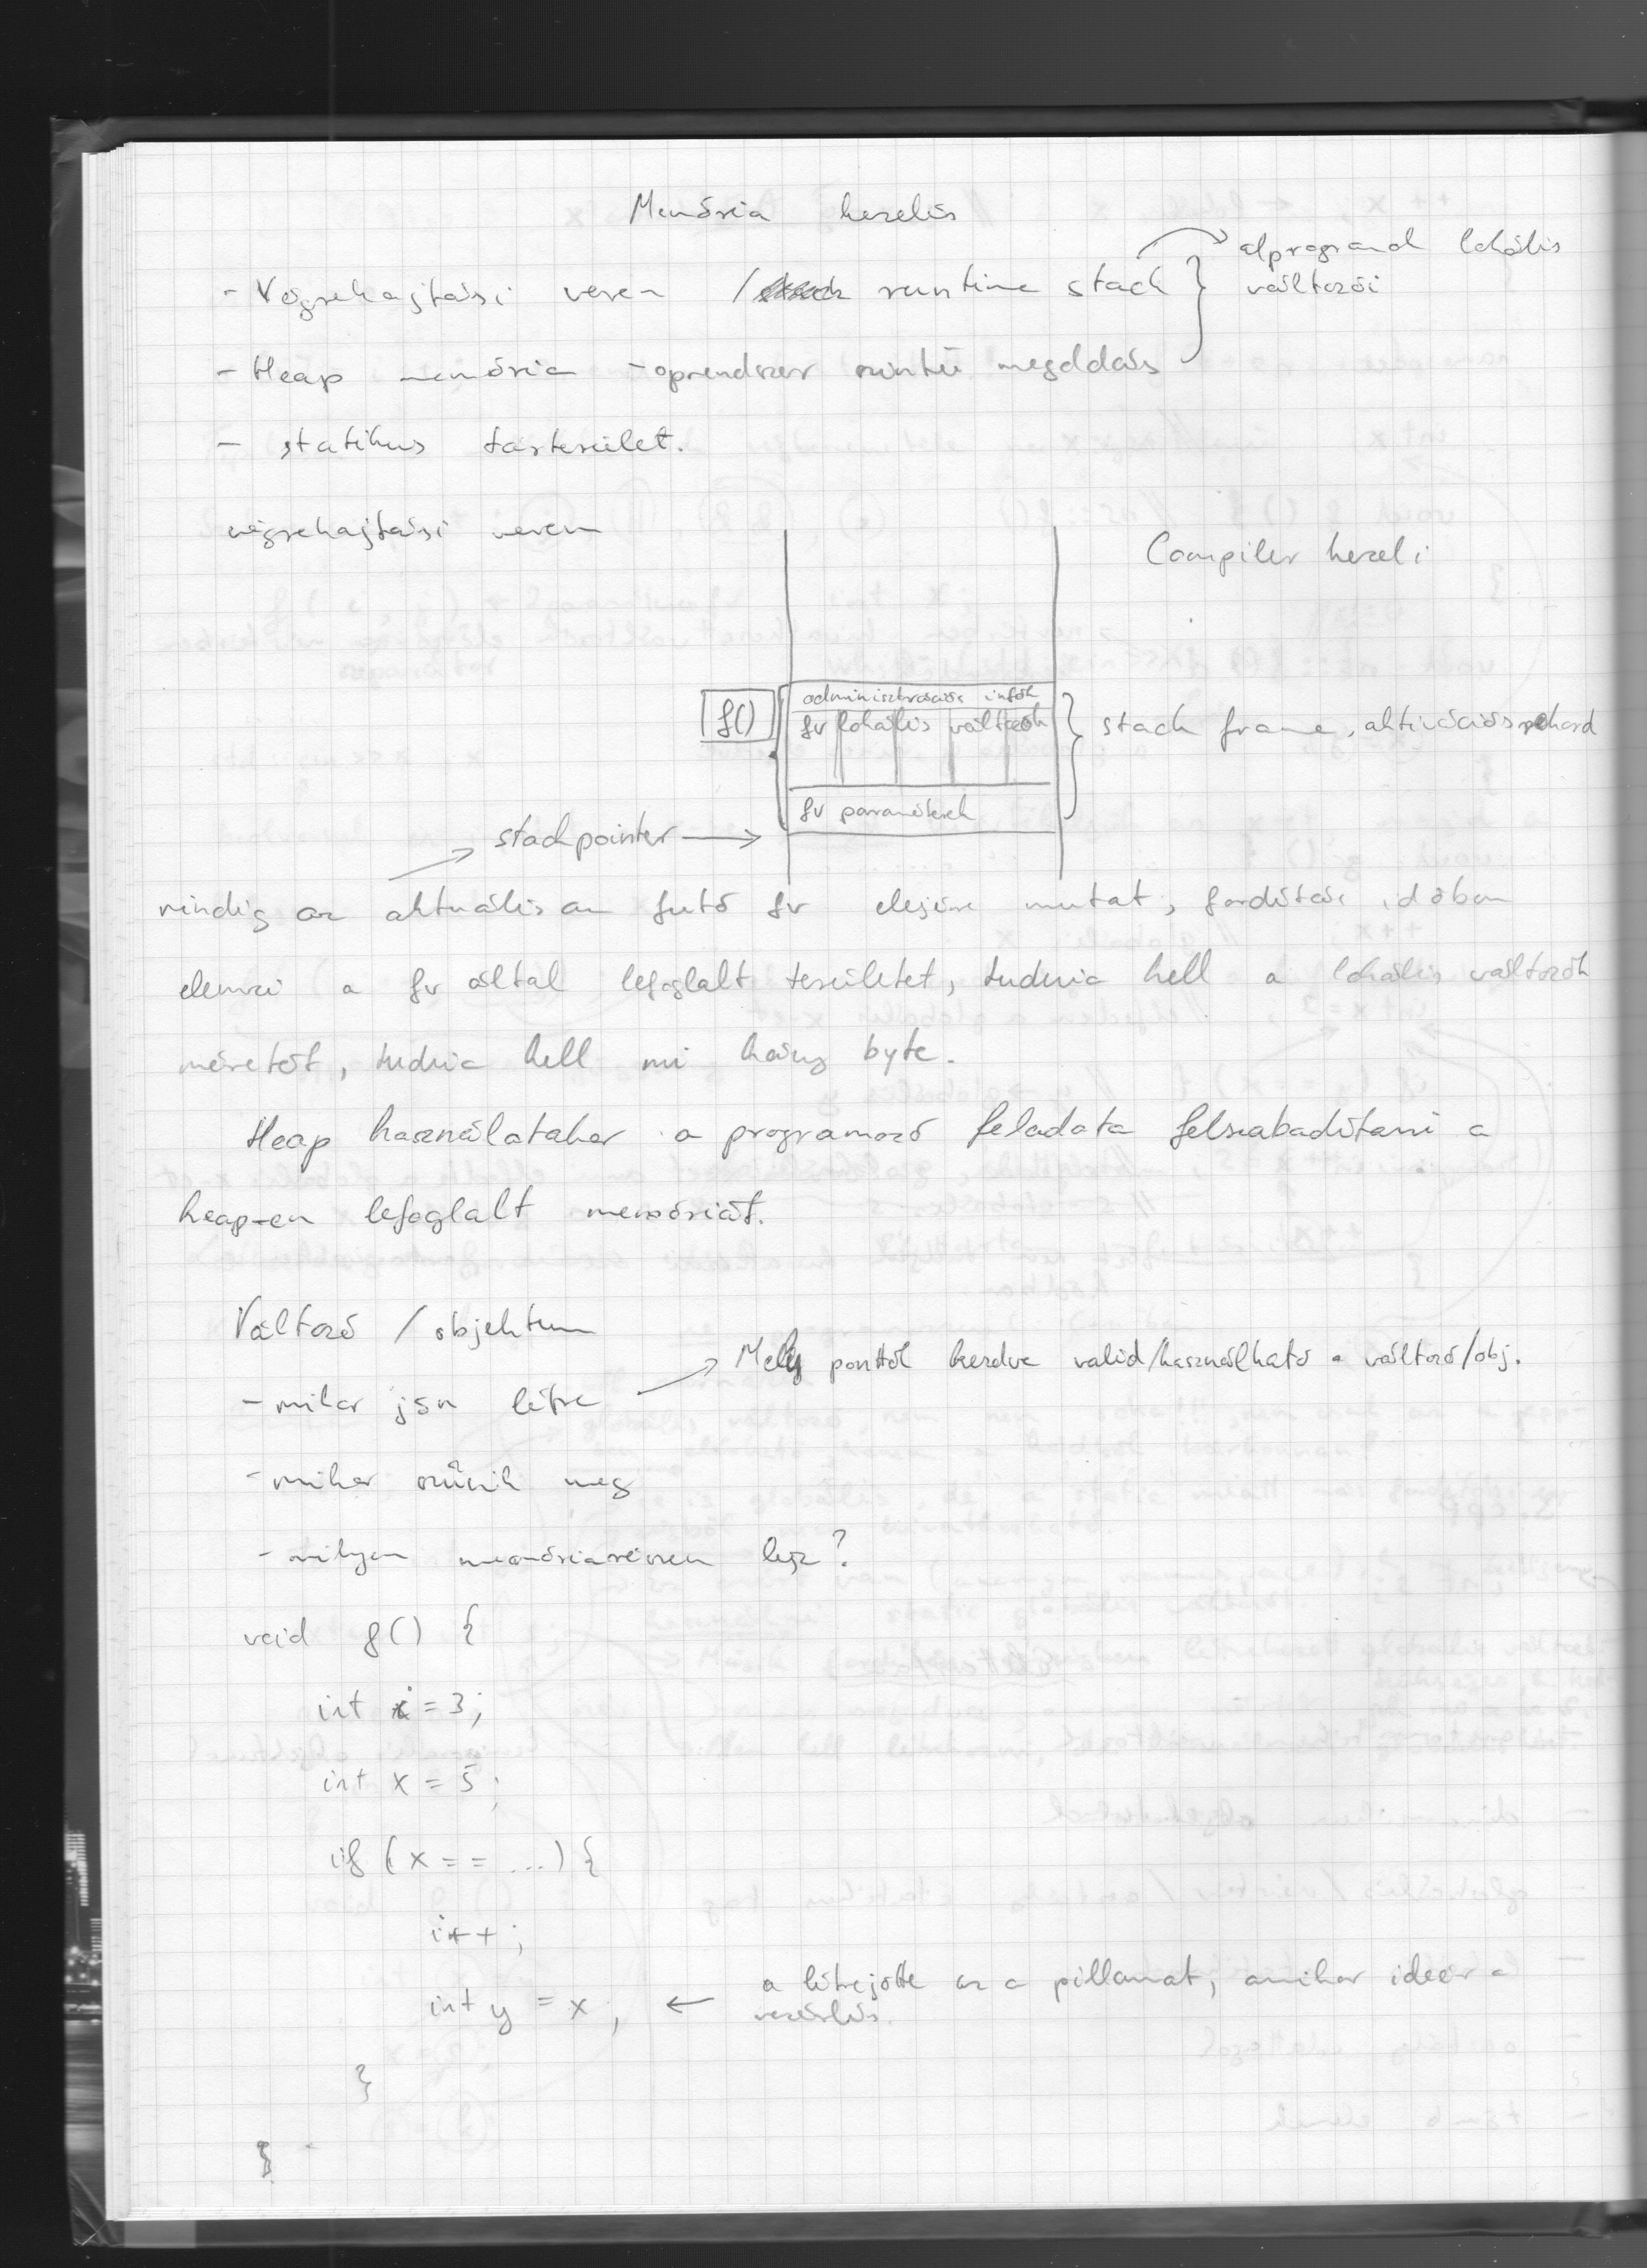 Memória kezelés
- Végrehajtási verem / runtime stack } alprogramok lokális
változói
- Heap memória - oprendszer szintű megoldás
- statikus tárterület.
végrehajtási verem
Compiler kezeli
adminisztrációs infók
f() fv lokális változók } stack frame, aktivációs rekord
fv paraméterek
stack pointer →
mindig az aktuálisan futó fv elejére mutat, fordítási időben
elemzi a fv által lefoglalt területet, tudnia kell a lokális változók
méretét, tudnia kell mi hány byte.
Heap használatakor a programozó feladata felszabadítani a
heap-en lefoglalt memóriát.
Változó / objektum
→ Mely ponttól kezdve valid/használható a változó/obj.
- mikor jön létre
- mikor szűnik meg
- milyen memóriarészen lesz?
void f() {
int i = 3;
int x = 5;
if (x == ...) {
i++;
int y = x; ← a létrejötte az a pillanat, amikor ideér a
vezérlés.
}
}